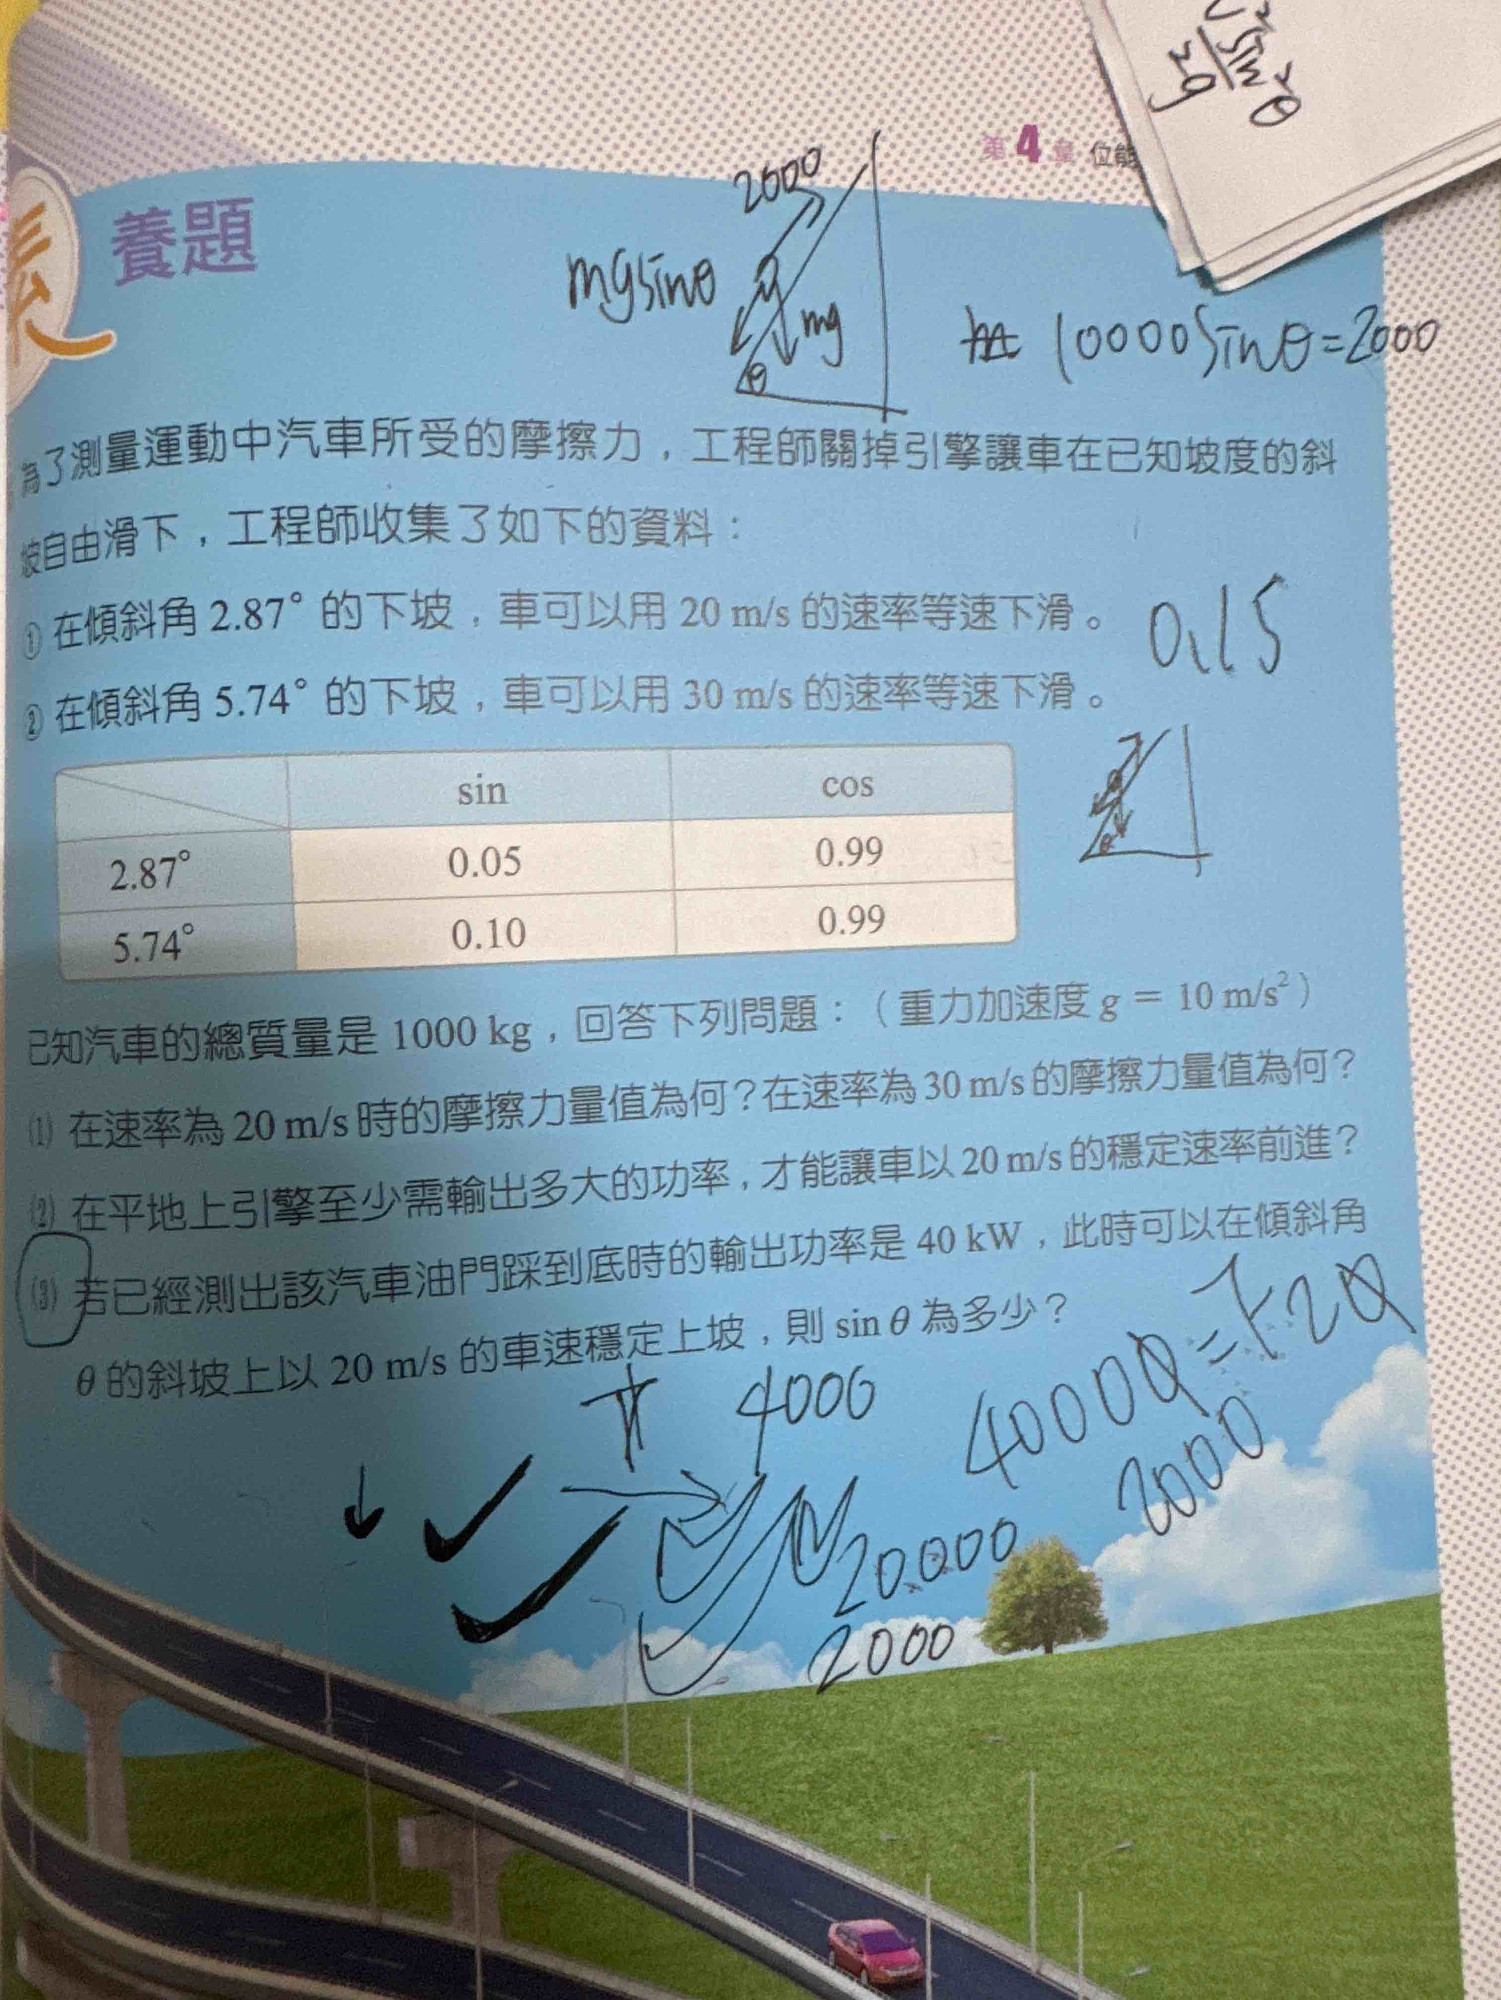 √²sin²θ
2g
第4章 位能
養題
2000
mgsinθ
mg
θ
10000sinθ=2000
為了測量運動中汽車所受的摩擦力，工程師關掉引擎讓車在已知坡度的斜
坡自由滑下，工程師收集了如下的資料：
① 在傾斜角 2.87° 的下坡，車可以用 20 m/s 的速率等速下滑。
0.15
② 在傾斜角 5.74° 的下坡，車可以用 30 m/s 的速率等速下滑。
sin cos
2.87° 0.05 0.99
5.74° 0.10 0.99
θ
已知汽車的總質量是 1000 kg，回答下列問題：（重力加速度 g = 10 m/s²）
⑴ 在速率為 20 m/s 時的摩擦力量值為何？在速率為 30 m/s 的摩擦力量值為何？
⑵ 在平地上引擎至少需輸出多大的功率，才能讓車以 20 m/s 的穩定速率前進？
⑶ 若已經測出該汽車油門踩到底時的輸出功率是 40 kW，此時可以在傾斜角
θ 的斜坡上以 20 m/s 的車速穩定上坡，則 sin θ 為多少？
4000
2000
20.000
2000